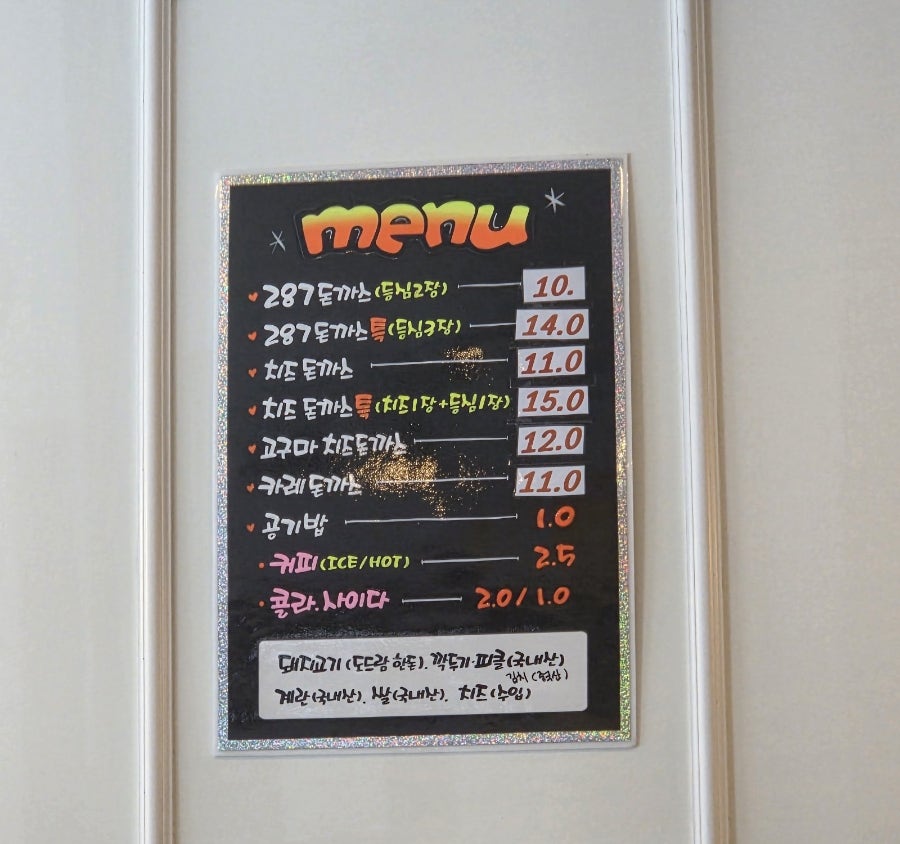 menu
287 돈까스 (등심2장) 10.
287 돈까스 특 (등심3장) 14.0
치즈 돈까스 11.0
치즈 돈까스 특 (치즈1장+등심1장) 15.0
고구마 치즈돈까스 12.0
카레 돈까스 11.0
공기밥 1.0
커피 (ICE/HOT) 2.5
콜라.사이다 2.0/1.0
돼지고기 (도드람 한돈). 깍두기·피클 (국내산)
김치 (중국산)
계란 (국내산). 쌀 (국내산). 치즈 (수입)